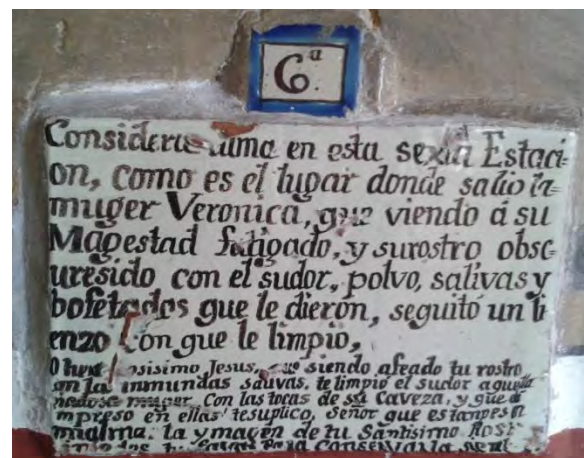 6ª
Considera alma en esta sexta Estaci-
on, como es el lugar donde salio la
muger Veronica, que viendo á su
Magestad fatigado, y su rostro obsc-
uresido con el sudor, polvo, salivas y
bofetadas que le dieron, seguitó un li
enzo con que le limpio,
Jesus, que siendo afeado tu rostro
on la inmundas salivas, te limpio el sudor aquella
muger, con las tocas de su Caveza, y que
mpreso en ellas tesuplico, Señor que estanpes n
mialma, la ymagen de tu Santisimo Rost
Conservarla